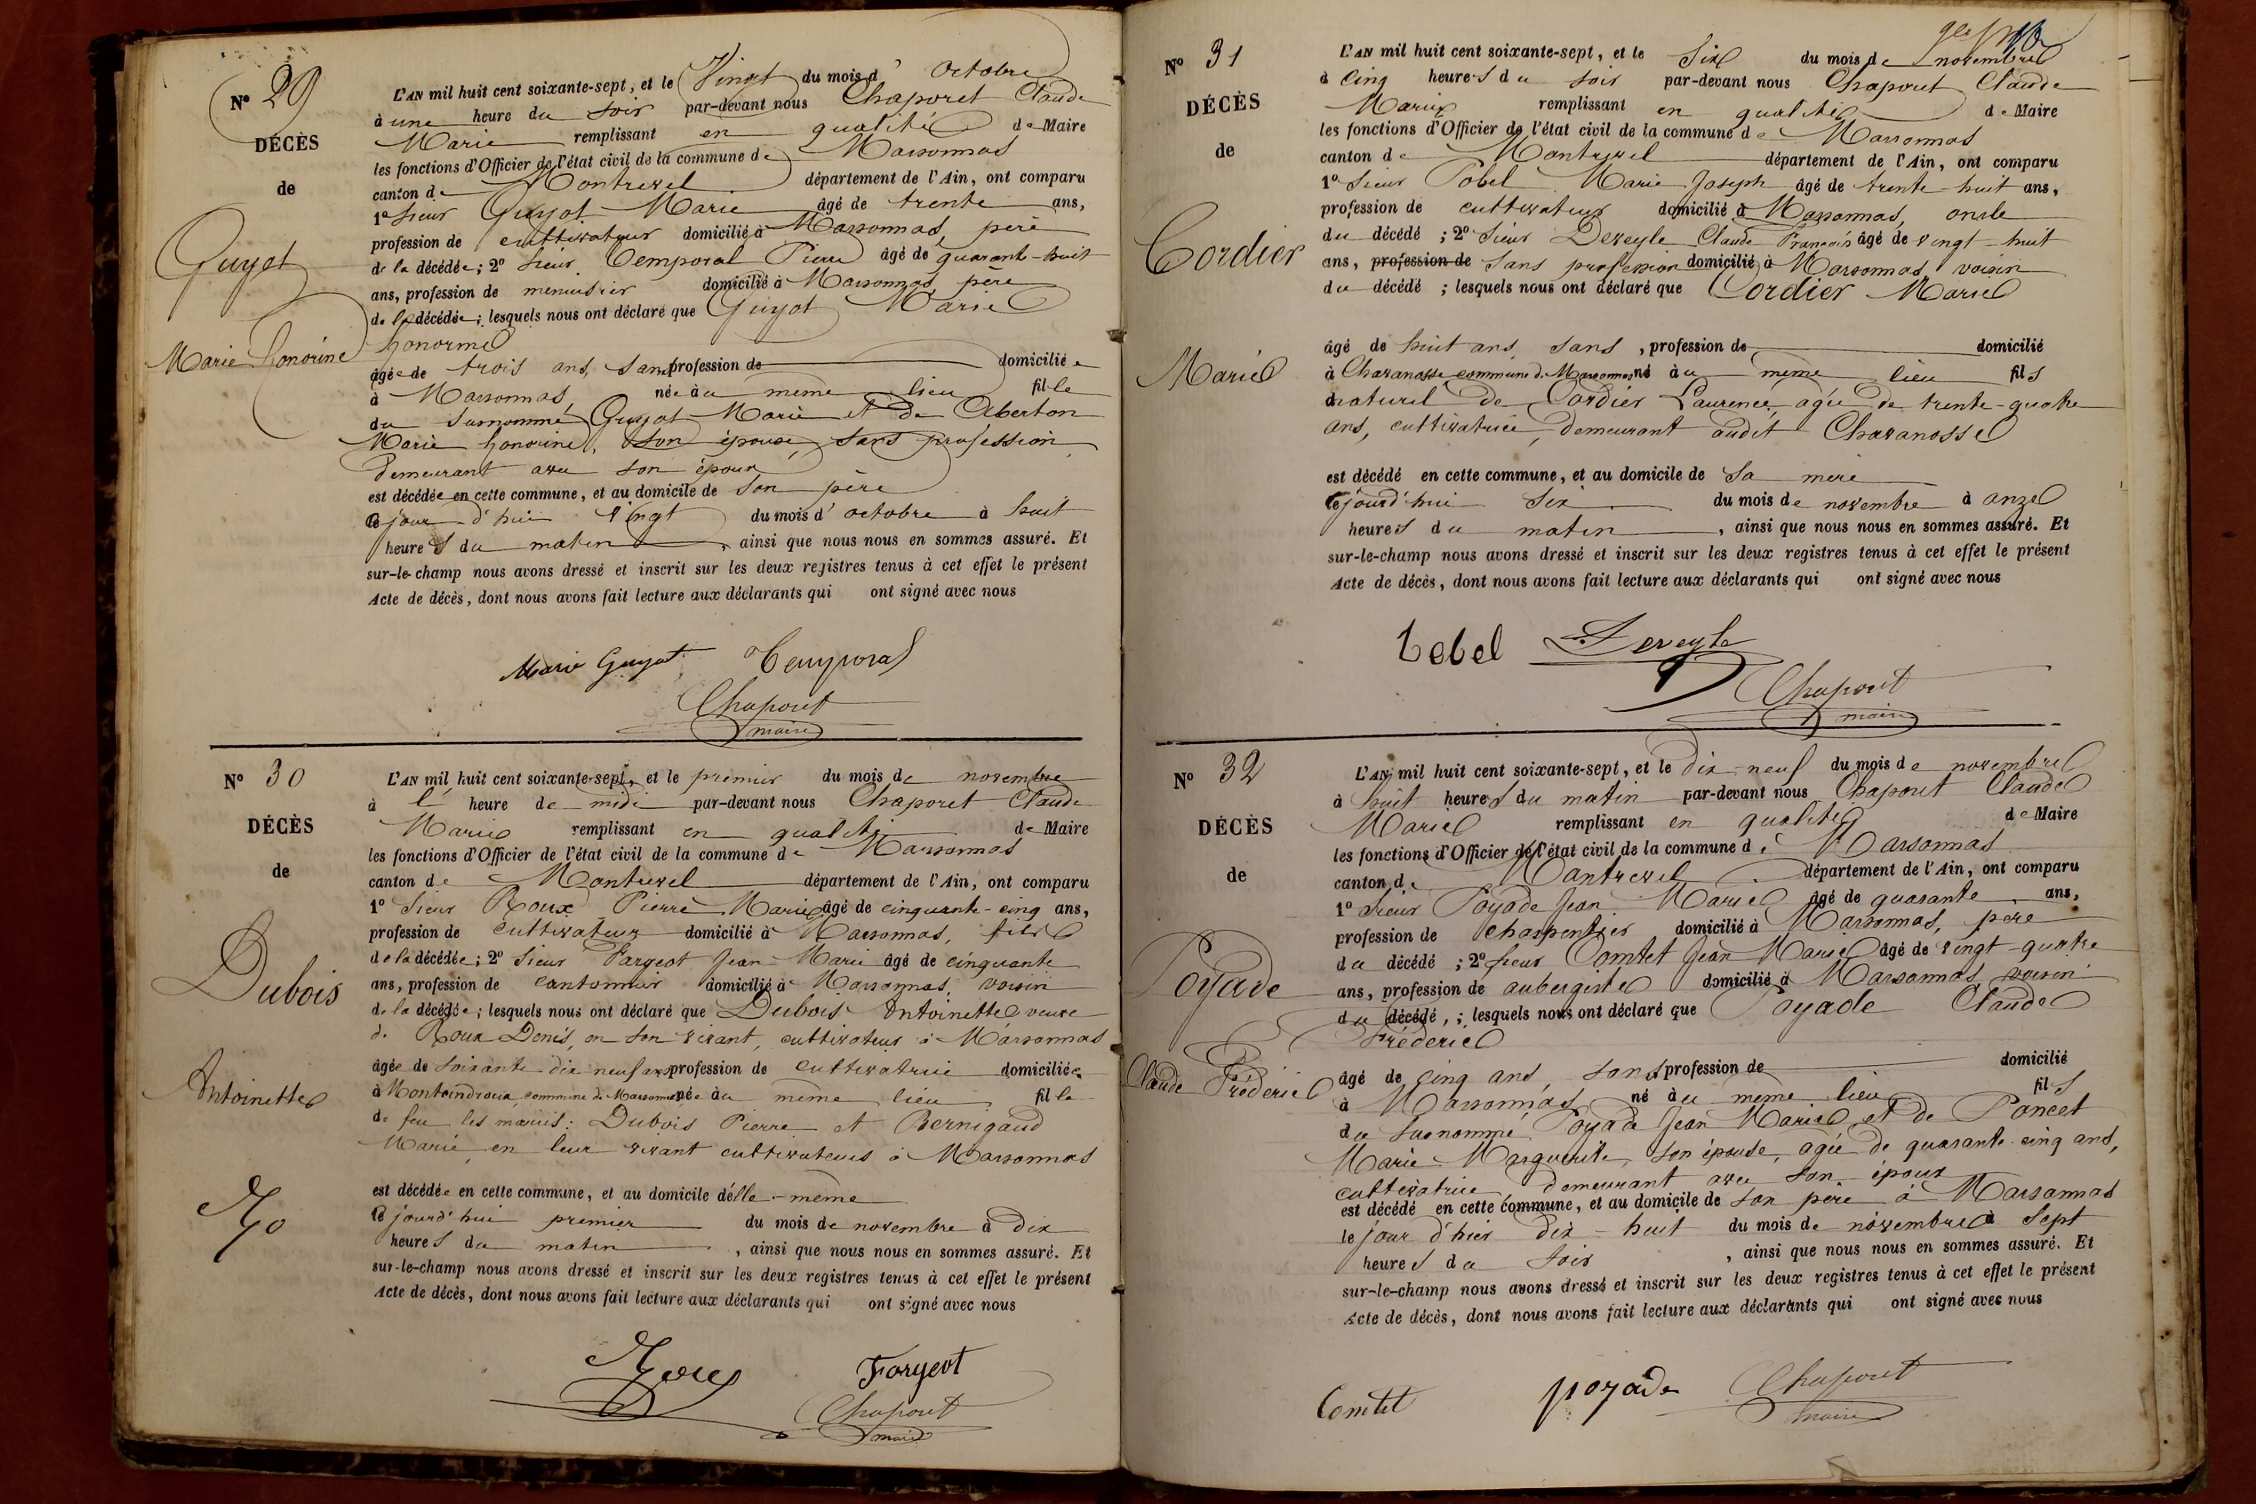 N° 29
DÉCÈS
de
Guyot
Marie honorine
L'AN mil huit cent soixante-sept, et le Vingt du mois d' octobre
à une heure du soir par-devant nous Chaporet Claude
Marie remplissant en qualité de Maire
les fonctions d'Officier de l'état civil de la commune de Marsonnas
canton de Montrevel département de l'Ain, ont comparu
1° Sieur Guyot Marie âgé de trente ans,
profession de cultivateur domicilié à Marsonnas, père
de la décédée; 2° sieur Temporal Pierre âgé de quarante-huit
ans, profession de menuisier domicilié à Marsonnas, père
de la décédée; lesquels nous ont déclaré que Guyot Marie
honorine
âgée de trois ans, sans profession de domiciliée
à Marsonnas, née au même lieu fille
du surnommé Guyot Marie et de Alberton
Marie honorine, son épouse, sans profession,
demeurant avec son époux
est décédée en cette commune, et au domicile de son père
ce jour d'hui vingt du mois d' octobre à huit
heures du matin, ainsi que nous nous en sommes assuré. Et
sur-le-champ nous avons dressé et inscrit sur les deux registres tenus à cet effet le présent
Acte de décès, dont nous avons fait lecture aux déclarants qui ont signé avec nous
Marie Guyot Temporal
Chaporet
maire
N° 30
DÉCÈS
de
Dubois
Antoinette
79
L'AN mil huit cent soixante-sept, et le premier du mois de novembre
à l' heure de midi par-devant nous Chaporet Claude
Marie remplissant en qualité de Maire
les fonctions d'Officier de l'état civil de la commune de Marsonnas
canton de Montrevel département de l'Ain, ont comparu
1° Sieur Roux Pierre Marie âgé de cinquante-cinq ans,
profession de cultivateur domicilié à Marsonnas, fils
de la décédée; 2° sieur Fargeot Jean Marie âgé de cinquante
ans, profession de cantonnier domicilié à Marsonnas, voisin
de la décédée; lesquels nous ont déclaré que Dubois Antoinette veuve
de Roux Denis, en son vivant, cultivateur à Marsonnas
âgée de soixante dix neuf ans profession de cultivatrice domiciliée
à commune de Marsonnas née au même lieu fille
de feu les mariés: Dubois Pierre et Bernigaud
Marie, en leur vivant cultivateurs à Marsonnas
est décédée en cette commune, et au domicile d'elle-même
ce jourd'hui premier du mois de novembre à dix
heures du matin, ainsi que nous nous en sommes assuré. Et
sur-le-champ nous avons dressé et inscrit sur les deux registres tenus à cet effet le présent
Acte de décès, dont nous avons fait lecture aux déclarants qui ont signé avec nous
Roux Fargeot
Chaporet
maire
N° 31
DÉCÈS
de
Cordier
Marie
L'AN mil huit cent soixante-sept, et le six du mois de novembre
à cinq heures du soir par-devant nous Chaporet Claude
Marie remplissant en qualité de Maire
les fonctions d'Officier de l'état civil de la commune de Marsonnas
canton de Montrevel département de l'Ain, ont comparu
1° Sieur Tobel Marie Joseph âgé de trente-huit ans,
profession de cultivateur domicilié à Marsonnas, oncle
du décédé; 2° Sieur Deveyle Claude François âgé de vingt-huit
ans, profession de sans profession domicilié à Marsonnas voisin
du décédé; lesquels nous ont déclaré que Cordier Marie
âgé de huit ans, sans, profession de domicilié
à Chavanosse commune de Marsonnas né au même lieu fils
naturel de Cordier Laurence, agée de trente-quatre
ans, cultivatrice, demeurant audit Chavanosse
est décédé en cette commune, et au domicile de sa mère
ce jourd'hui six du mois de novembre à onze
heures du matin, ainsi que nous nous en sommes assuré. Et
sur-le-champ nous avons dressé et inscrit sur les deux registres tenus à cet effet le présent
Acte de décès, dont nous avons fait lecture aux déclarants qui ont signé avec nous
Tobel Deveyle
Chaporet
maire
N° 32
DÉCÈS
de
Poyade
Claude Fréderic
L'AN mil huit cent soixante-sept, et le dix-neuf du mois de novembre
à huit heures du matin par-devant nous Chaporet Claude
Marie remplissant en qualité de Maire
les fonctions d'Officier de l'état civil de la commune de Marsonnas
canton de Montrevel département de l'Ain, ont comparu
1° Sieur Poyade Jean Marie âgé de quarante ans,
profession de charpentier domicilié à Marsonnas, père
du décédé; 2° sieur Comtet Jean Marie âgé de vingt-quatre
ans, profession de aubergiste domicilié à Marsonnas voisin
du décédé,; lesquels nous ont déclaré que Poyade Claude
Fréderic
âgé de cinq ans, sans profession de domicilié
à Marsonnas, né au même lieu fils
du susnommé Poyade Jean Marie et de Poncet
Marie Marguerite, son épouse, agée de quarante-cinq ans,
cultivatrice demeurant avec son époux
est décédé en cette commune, et au domicile de son père à Marsonnas
le jour d'hier dix-huit du mois de novembre à sept
heures du soir, ainsi que nous nous en sommes assuré. Et
sur-le-champ nous avons dressé et inscrit sur les deux registres tenus à cet effet le présent
Acte de décès, dont nous avons fait lecture aux déclarants qui ont signé avec nous
Comtet poyade Chaporet
maire